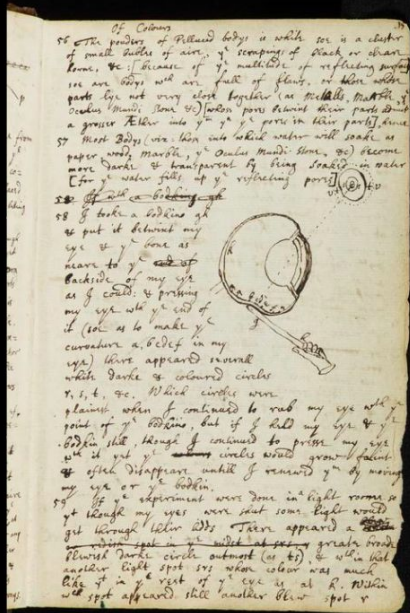 Of Colours
56 The powders of Pellucid bodys is white soe is a cluster
of small bubles of aire, yᵉ scrapings of black or cleare
horne, &c: [because of yᵉ multitude of reflecting surfaces]
soe are bodys wᶜʰ are full of flaws, or those whose
parts lye not very close together (as Metalls, Marble, yᵉ
Oculus Mundi stone &c) [whose pores betwixt their parts admit
a grosser Æther into yᵐ yⁿ yᵉ pores in their parts], hence
57 Most Bodys (viz: those into which water will soake as
paper, wood, marble, yᵉ Oculus Mundi stone, &c) become
more darke & transparent by being soaked in water
[for yᵉ water fills up yᵉ reflecting pores]
58 I tooke a bodkine gh
& put it betwixt my
eye & yᵉ bone as
neare to yᵉ
backside of my eye
as I could: & pressing
my eye wᵗʰ yᵉ end of
it (soe as to make yᵉ
curvature a, bcdef in my
eye) there appeared severall
white darke & coloured circles
r, s, t, &c. Which circles were
plainest when I continued to rub my eye wᵗʰ yᵉ
point of yᵉ bodkine, but if I held my eye & yᵉ
bodkin still, though I continued to presse my eye
wᵗʰ it yet yᵉ circles would grow faint
& often disappeare untill I renewed yᵐ by moving
my eye or yᵉ bodkin.
59 If yᵉ experiment were done in a light roome so
yᵗ though my eyes were shut some light would
get through their lidds There appeared a
greate broade
blewish darke circle outmost (as ts), & wᵗʰin that
another light spot srs whose colour was much
like yᵗ in yᵉ rest of yᵉ eye as at k. Within
wᶜʰ spot appeared still another blew spot r